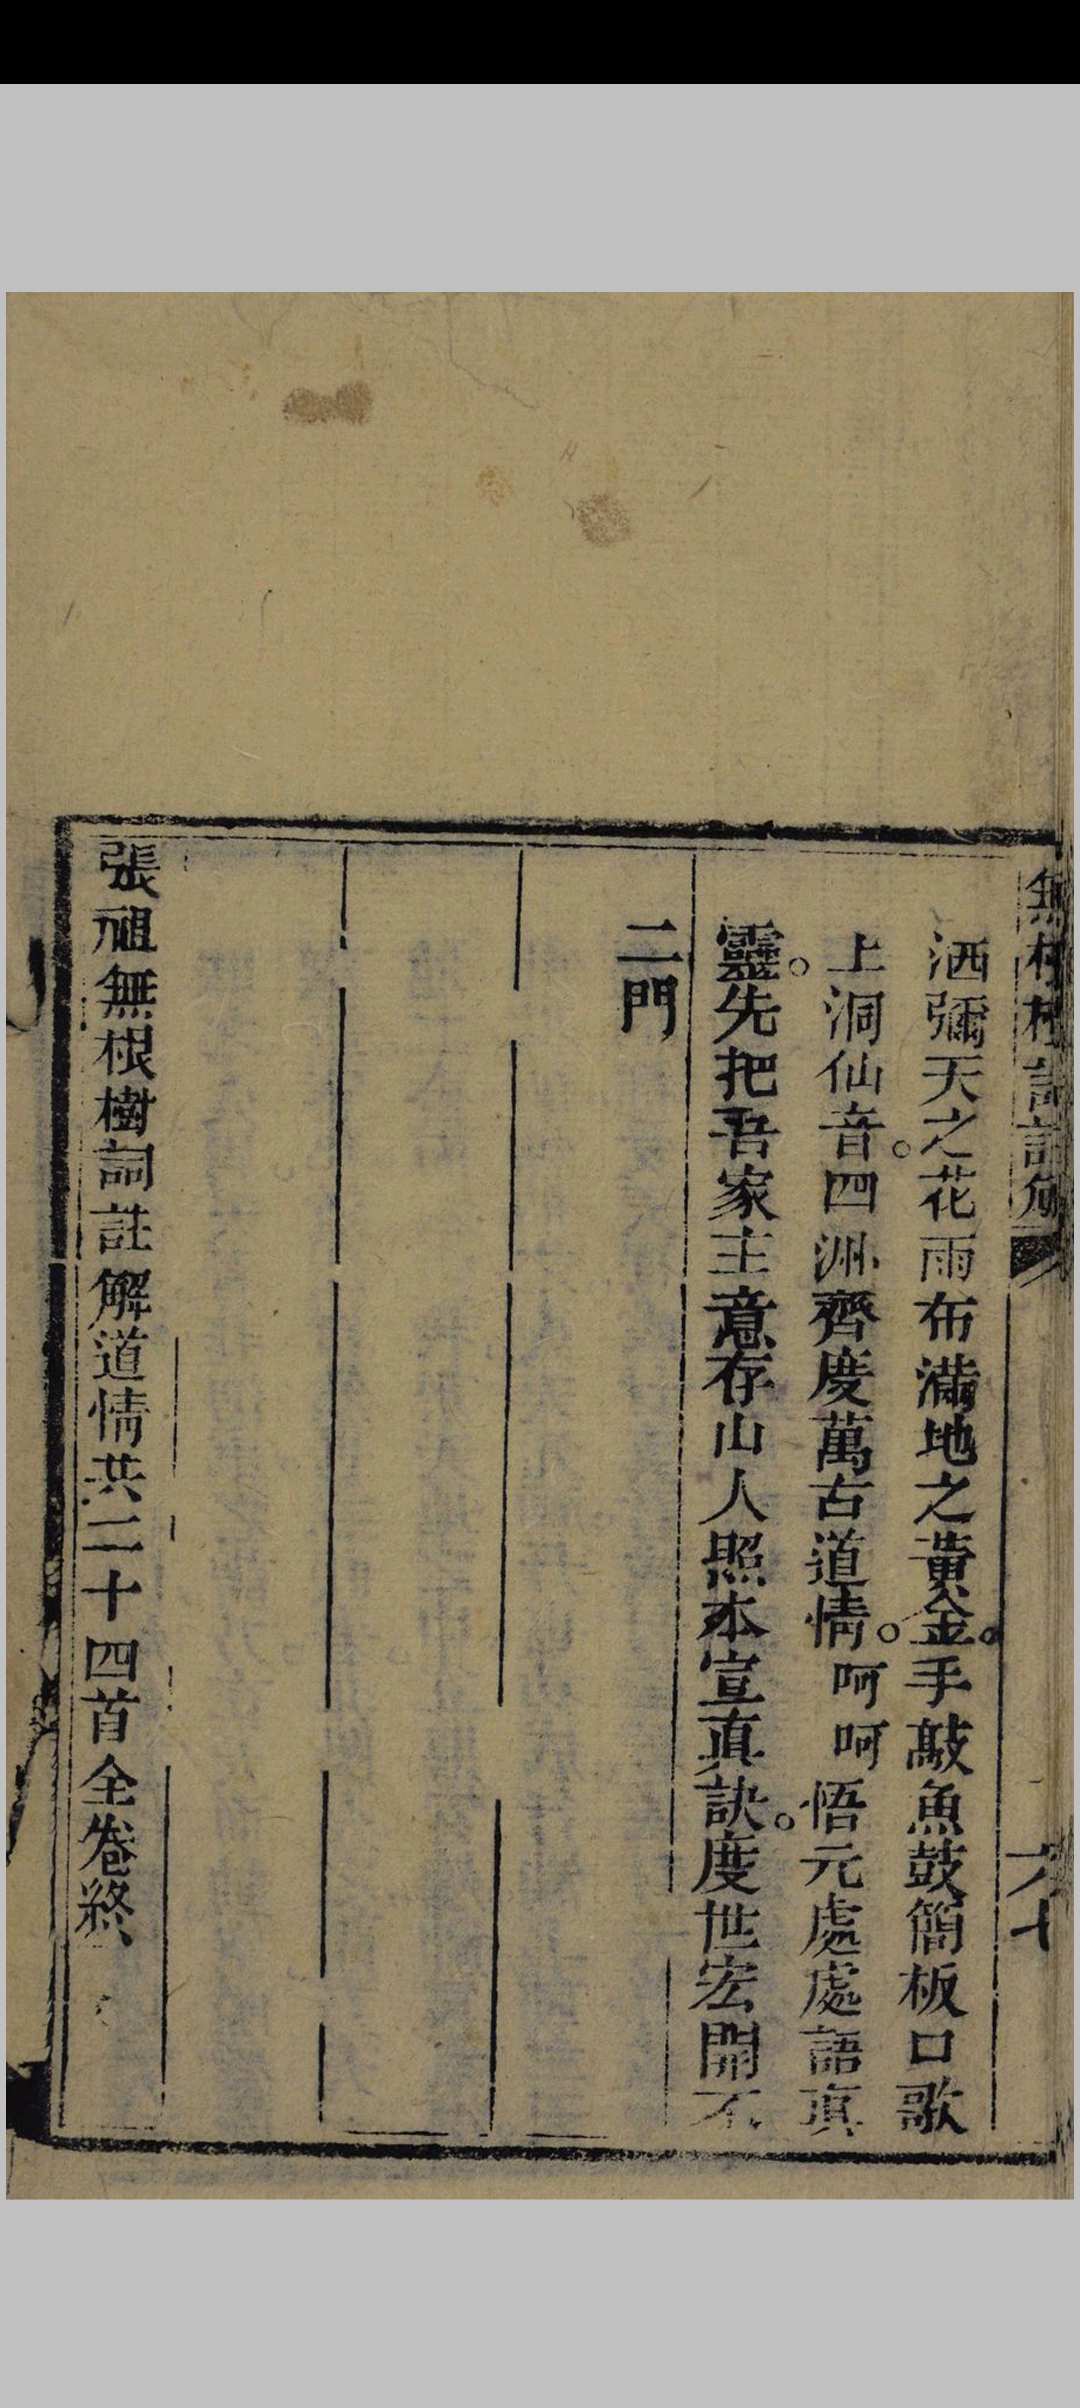 無根樹詞註解
六七
洒彌天之花雨布滿地之黃金。手敲魚鼓簡板口歌
上洞仙音。四洲齊度萬古道情。呵呵悟元處處語真
靈。先把吾家主意存山人照本宣真訣。度世宏開不
二門
張祖無根樹詞註解道情共二十四首全卷終